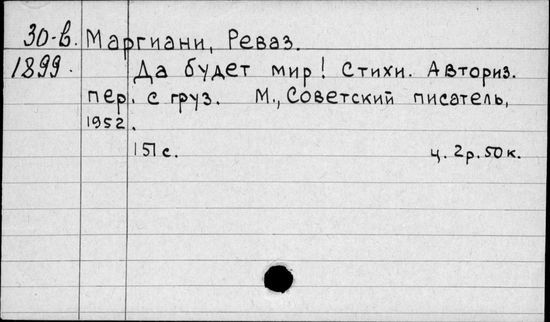 30-в. Маргиани, Реваз.
1899. Да будет мир! Стихи. Авториз.
пер. с груз. М., Советский писатель,
1952.
151 с. ц. 2р. 50к.